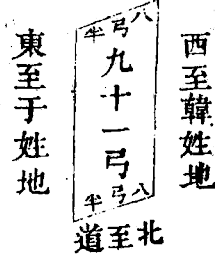 西至韓姓地
八弓半
九十一弓
八弓半
東至于姓地
北至道